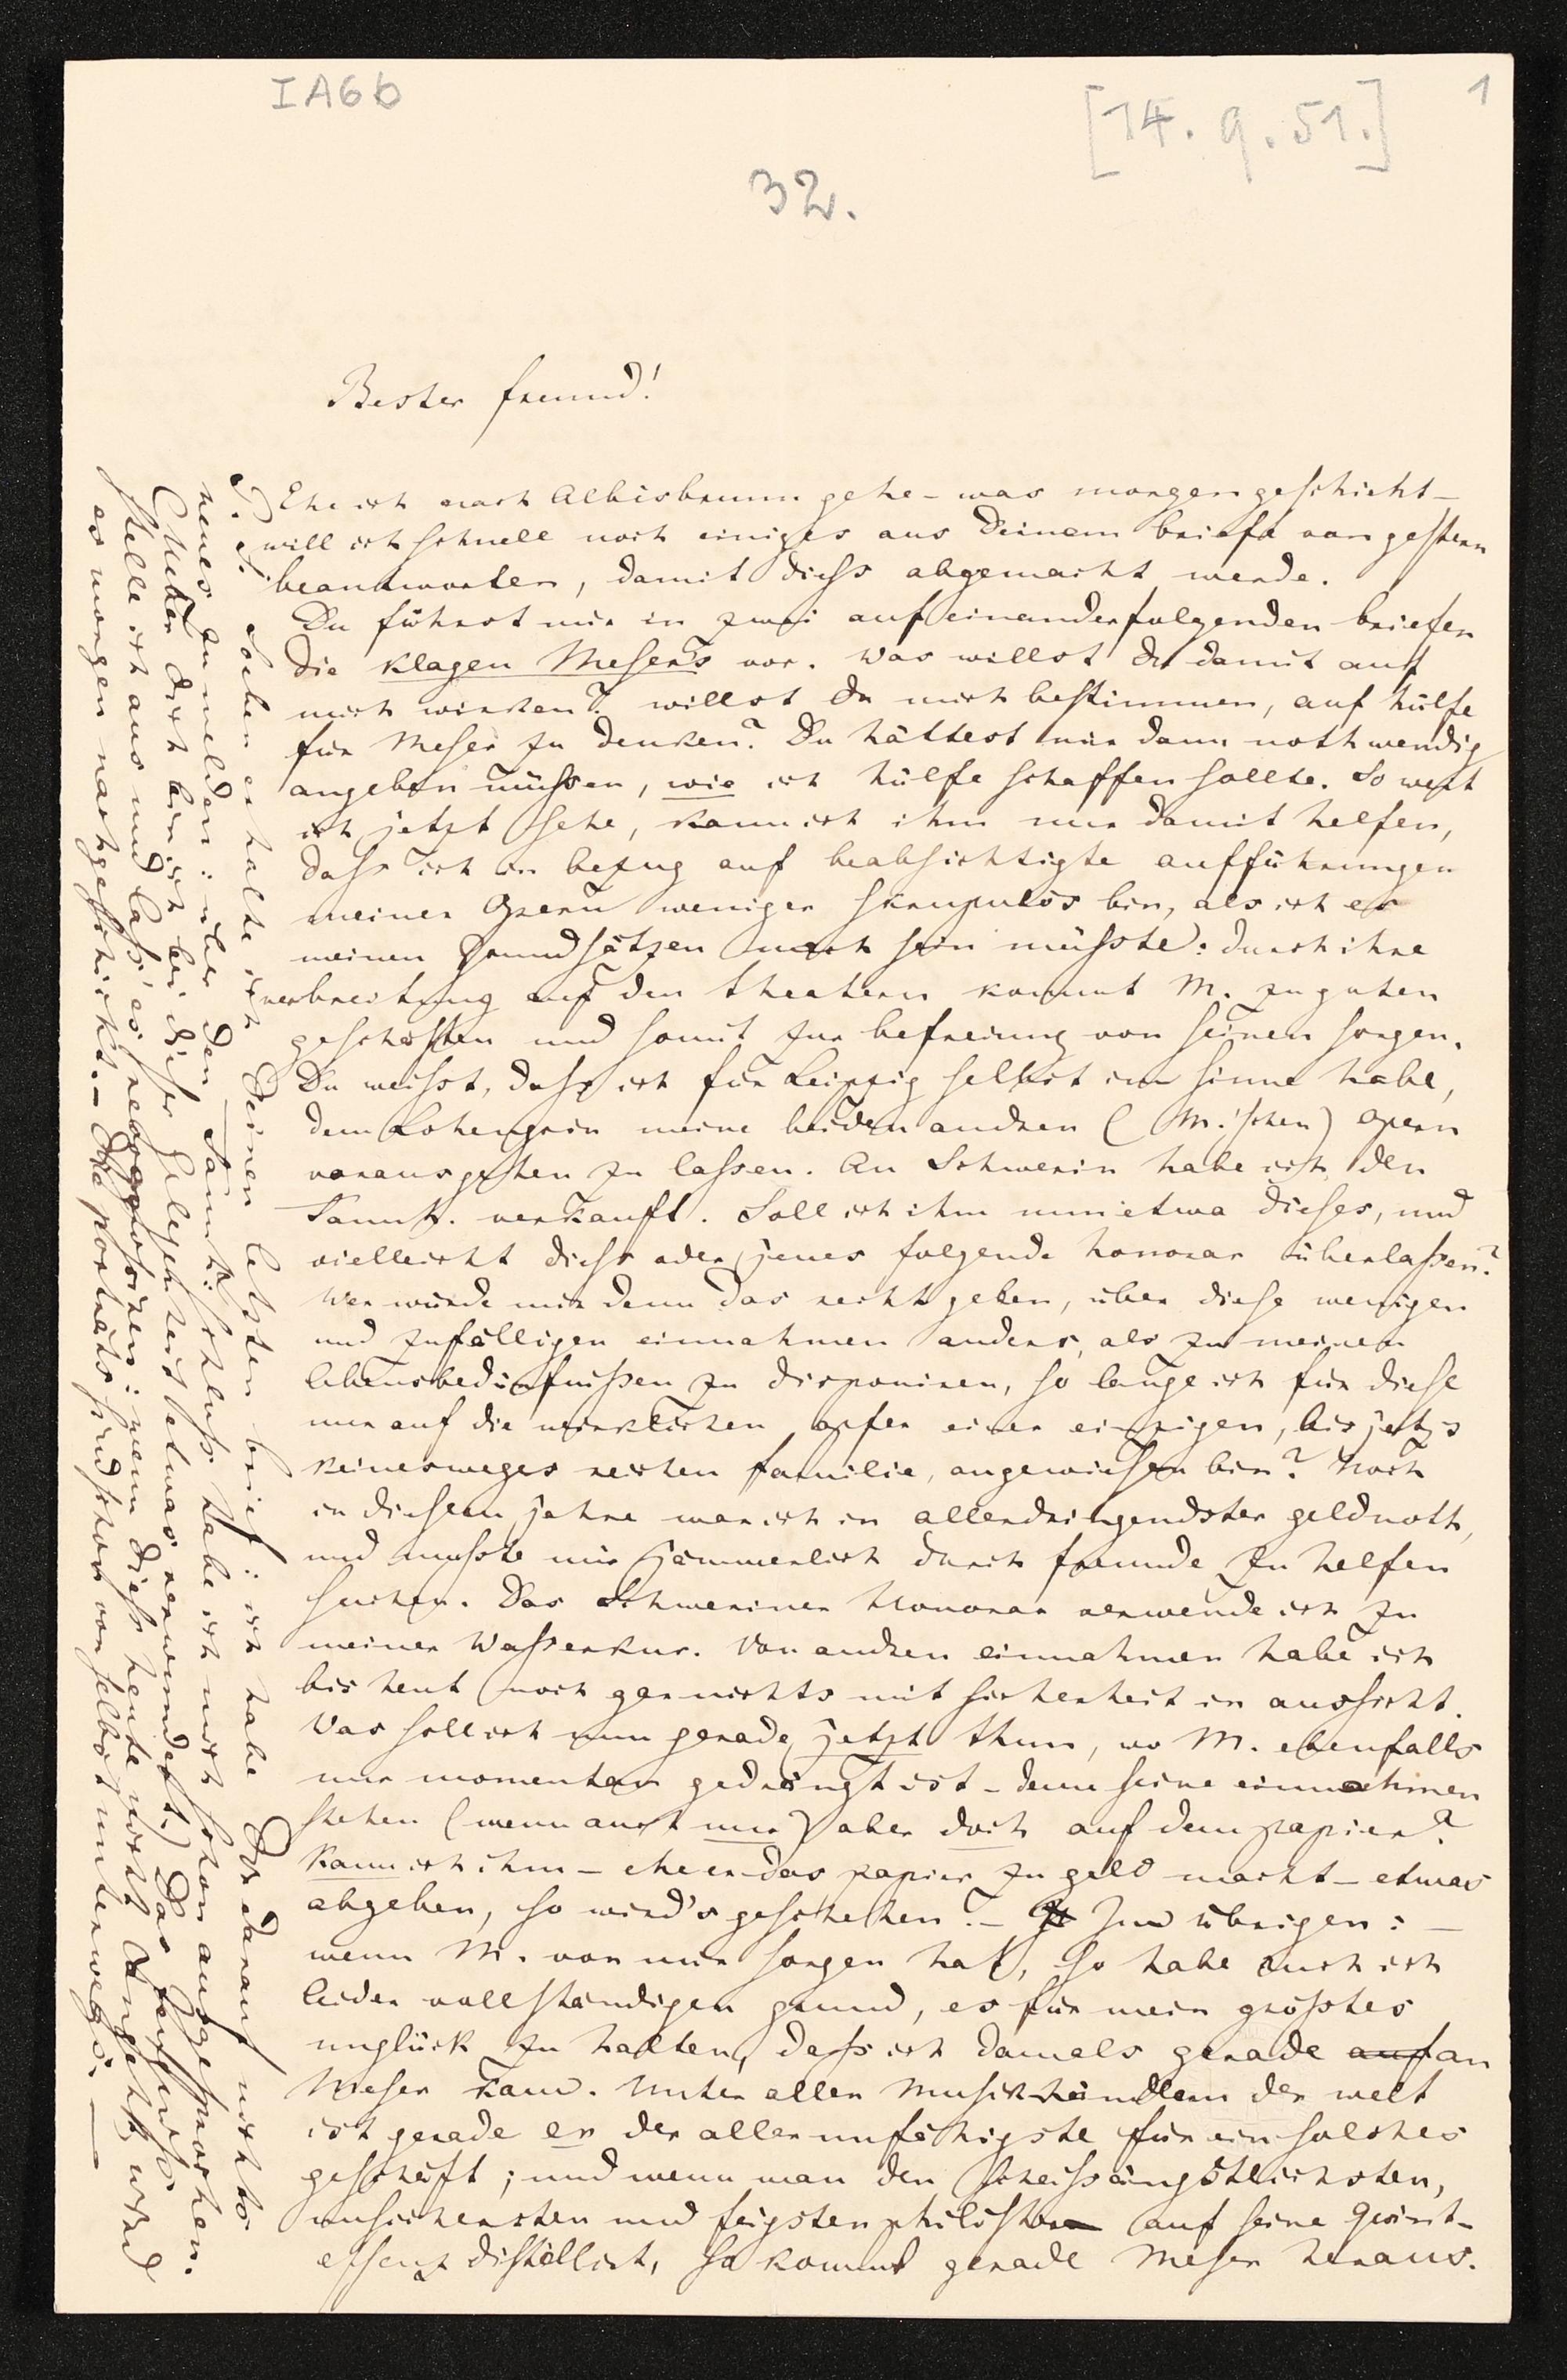 IA6b
[14. 9. 51.]
1
32.
Bester freund!
Ehe ich nach Albisbrunn gehe – was morgen geschieht –
will ich schnell noch einiges aus Deinem briefe von gestern
beantworten, damit diess abgemacht werde.
Du führst mir in zwei aufeinanderfolgenden briefen
die klagen Meser's vor. Was willst du damit auf
mich wirken? willst du mich bestimmen, auf hülfe
für Meser zu denken? Du hättest mir dann nothwendig
angeben müssen, wie ich hülfe schaffen sollte. So weit
ich jetzt sehe, kann ich ihm nur damit helfen,
dass ich in bezug auf beabsichtigte aufführungen
meiner Opern weniger skrupulös bin, als ich es
meinen grundsätzen nach sein müsste: durch ihre
verbreitung auf den theatern kommt M. zu guten
geschäften und somit zur befreiung von seinen sorgen.
Du weisst, dass ich für Leipzig selbst im sinne habe,
dem Lohengrin meine beiden andren (M.'schen) opern
vorausgehen zu lassen. An Schwerin habe ich den
Tannh. verkauft. Soll ich ihm nun etwa dieses, und
vielleicht diess oder jenes folgende honorar überlassen?
Wer würde mir denn das recht geben, über diese wenigen
und zufälligen einnahmen anders, als zu meinen
lebensbedürfnissen zu disponiren, so lange ich für diese
nur auf die wirklichen opfer einer einzigen, bis jetzt
keinesweges reichen familie, angewiesen bin? Noch
in diesem jahre war ich in allerdringendster geldnoth,
und musste mir jämmerlich durch freunde zu helfen
suchen. Das Schweriner Honorar verwende ich zu
meiner Wasserkur. Von andren einnahmen habe ich
bis heut noch gar nichts mit sicherheit in aussicht.
Was soll ich nun gerade jetzt thun, wo M. ebenfalls
nur momentan gedrängt ist – denn seine einnahmen
stehen (wenn auch nur) aber doch auf dem papier?
Kann ich ihm – ehe er das papier zu geld macht – etwas
abgeben, so wird's geschehen? – Im übrigen: –
wenn M. von mir sorgen hat, so habe auch ich
leider vollständigen grund, es für mein grösstes
unglück zu halten, dass ich damals gerade auf an
Meser kam. Unter allen Musikhändlern der welt
ist gerade er der allerunfähigste für ein solches
geschäft; und wenn man den scheissängstlichsten,
unsichersten und feigsten philister auf seine Quint-
essenz distillirt, so kommt gerade Meser heraus.
P. S. Soeben erhalte ich Deinen letzten brief: ich habe Dir darauf nichts
neues zu melden: über den Tannh: schluss habe ich mich schon ausgesprochen.
(Ueber dich bin ich bei dieser gelegenheit etwas verwundert.)
stelle ich aus und lass' es
es morgen nachgeschickt. – Die portraits sind schon von selbst unterweges. –